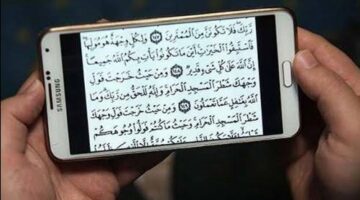 رَبِّكَ فَلَا تَكُونَنَّ مِنَ ٱلْمُمْتَرِينَ ١٤٧ وَلِكُلٍّ وِجْهَةٌ هُوَ مُوَلِّيهَا
فَٱسْتَبِقُوا۟ ٱلْخَيْرَٰتِ أَيْنَ مَا تَكُونُوا۟ يَأْتِ بِكُمُ ٱللَّهُ جَمِيعًا
إِنَّ ٱللَّهَ عَلَىٰ كُلِّ شَىْءٍ قَدِيرٌ ١٤٨ وَمِنْ حَيْثُ خَرَجْتَ فَوَلِّ
وَجْهَكَ شَطْرَ ٱلْمَسْجِدِ ٱلْحَرَامِ وَإِنَّهُۥ لَلْحَقُّ مِن رَّبِّكَ وَمَا
ٱللَّهُ بِغَٰفِلٍ عَمَّا تَعْمَلُونَ ١٤٩ وَمِنْ حَيْثُ خَرَجْتَ فَوَلِّ وَجْهَكَ
شَطْرَ ٱلْمَسْجِدِ ٱلْحَرَامِ وَحَيْثُ مَا كُنتُمْ فَوَلُّوا۟ وُجُوهَكُمْ
SAMSUNG